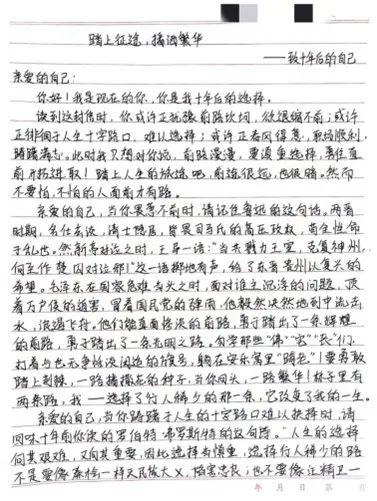 踏上征途，摘洒繁华
——致十年后的自己
亲爱的自己：
你好！我是现在的你，你是我十年后的选择。
读到这封信时，你或许正犹豫前路坎坷，欲退缩不前；或许
正徘徊于人生十字路口，难以选择；或许正春风得意，职场顺利，
踌躇满志。此时我只想对你说，前路漫漫，要慎重选择，勇往直
前开拓进取！踏上人生的旅途吧，前途很远，也很暗。然而
不要怕，不怕的人面前才有路。
亲爱的自己，当你畏葸不前时，请记住鲁迅的这句话。两晋
时期，名仕去浊，清士隐居，皆畏司马氏的高压政权，苟全性命
于乱世。然新亭对泣之时，王导一语：“当共戮力王室，克复神州，
何至作楚囚对泣耶！”这一语掷地有声，给了东晋贵州以复兴的
希望。毛泽东在国家危难当头之时，面对谁主沉浮的问题，顶
着万户侯的迫害，冒着国民党的弹雨，他毅然决然地到中流击
水，浪遏飞舟。他们能直面惨淡的前路，勇于踏出了一条辉煌
的前路，勇于踏出了一条光明之路。勿学那些“佛”“宅”“民”们，
打着与世无争恬淡闲适的旗号，躺在安乐窝里“啃老”！要勇敢
踏上荆棘，一路播撒花的种子，当你回头，一路繁华！林子里有
两条路，我——选择了行人稀少的那一条，它改变了我的一生。
亲爱的自己，当你踌躇于人生的十字路口难以抉择时，请
回味十年前你读的罗伯特·弗罗斯特的这句诗。“人生的选择
何其艰难，又何其重要，因此选择当慎重，选择行人稀少的路
不是要像秦桧一样灭民族大义，陷害忠良；也不要像汪精卫一
年 月 日 第 页